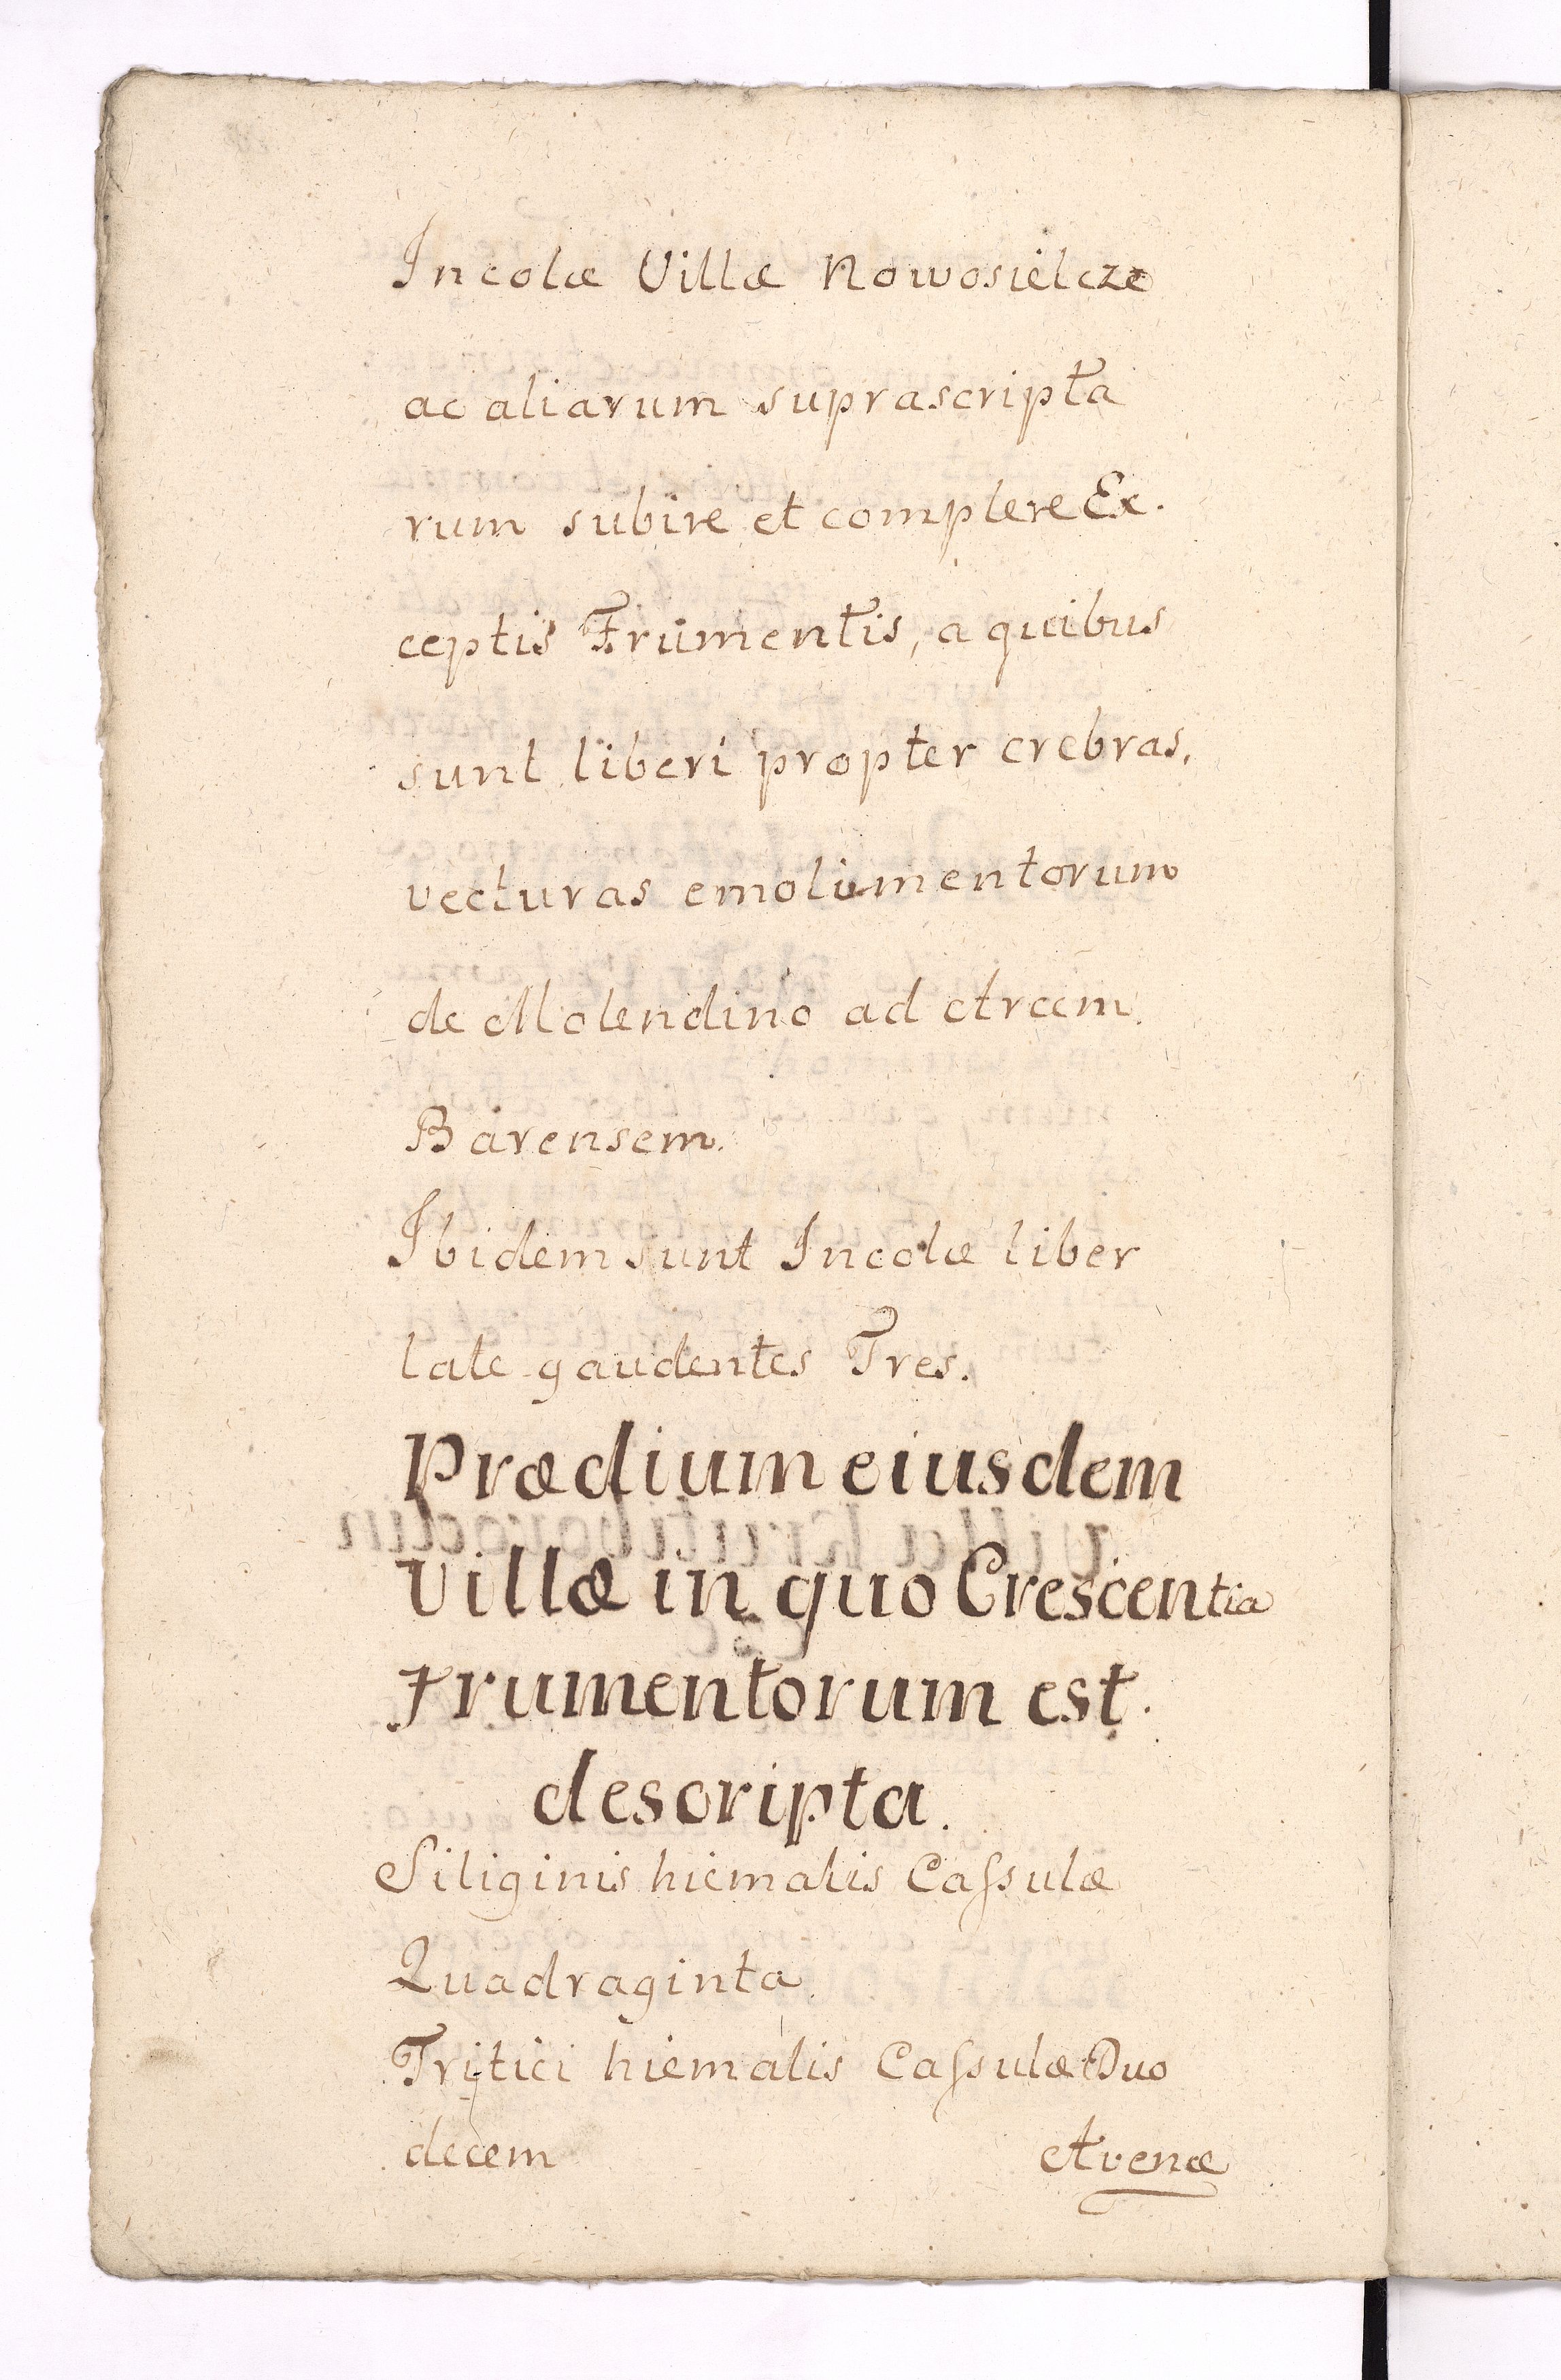 Incolæ Villæ Nowosielcze
ac aliarum suprascripta
rum subire et complere Ex.
ceptis Frumentis, a quibus
sunt liberi propter crebras,
vecturas emolumentorum
de Molendino ad Arcem
Barensem.
Ibidem sunt Incolæ liber
tate gaudentes Tres.
Prædium eiusdem
Villæ in quo Crescentia
Frumentorum est.
descripta.
Siliginis hiemalis Caſsulæ
Quadraginta.
Tritici hiemalis Caſsulæ Duo
decem
Avenæ